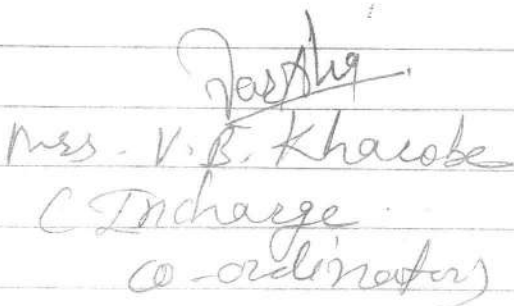 Mrs. V. B. Kharobe
( Incharge
co-ordinator)